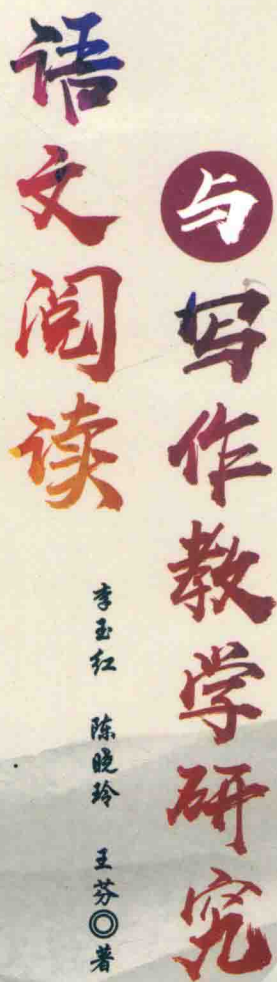 语文阅读
与写作教学研究
李玉红 陈晓玲 王芬◎著